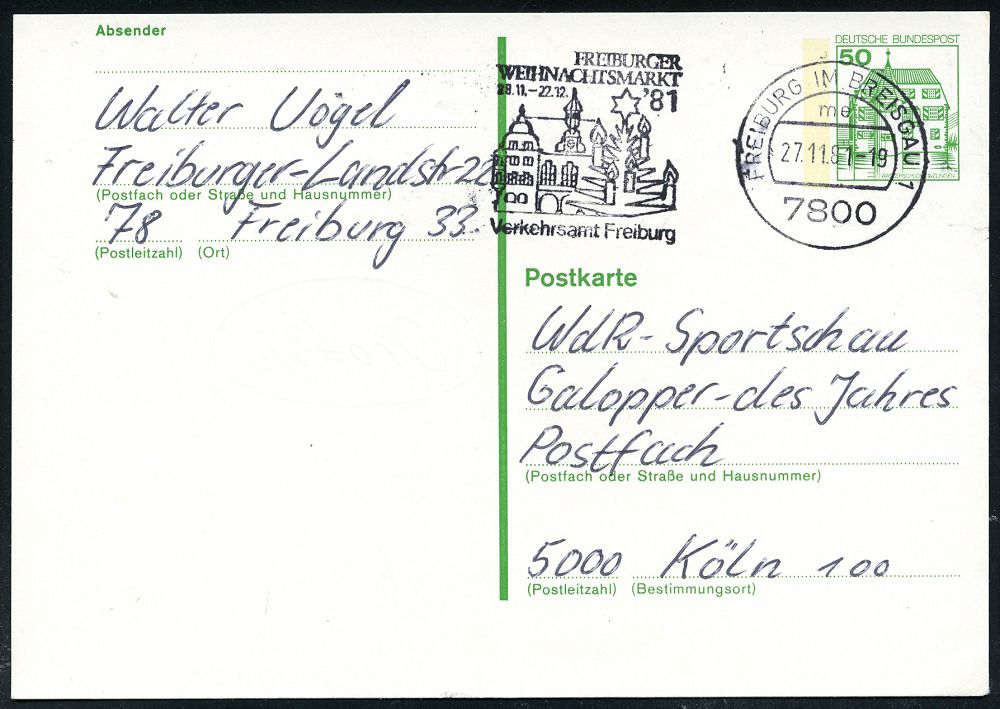 Absender
Walter Vögel
Freiburger-Landstr
(Postfach oder Straße und Hausnummer)
78 Freiburg 33.
(Postleitzahl) (Ort)
FREIBURGER
WEIHNACHTSMARKT
28.11.–22.12. '81
Verkehrsamt Freiburg
FREIBURG IM BREISGAU 1
me
27.11.81-19
7800
DEUTSCHE BUNDESPOST
50
WASSERSCHLOSS INZLINGEN
Postkarte
WdR-Sportschau
Galopper-des Jahres
Postfach
(Postfach oder Straße und Hausnummer)
5000 Köln 100
(Postleitzahl) (Bestimmungsort)